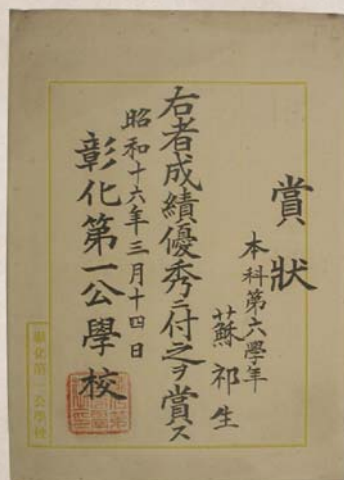 賞狀
本科第六學年
蘇祁生
右者成績優秀ニ付之ヲ賞ス
昭和十六年三月十四日
彰化第一公學校
彰化第一公學校